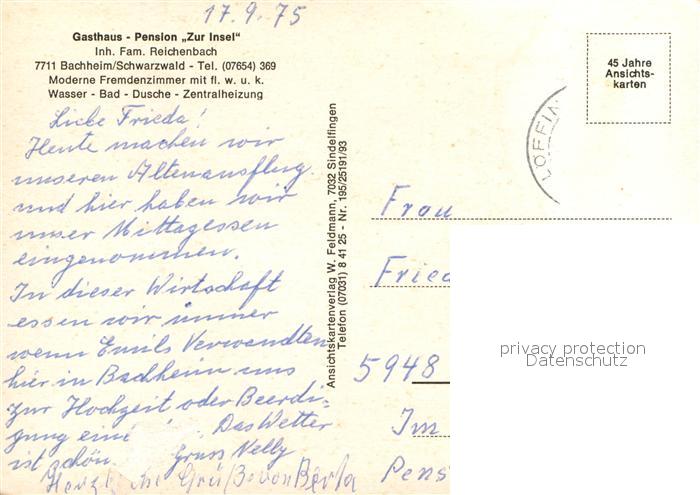 17.9.75
Gasthaus - Pension „Zur Insel"
Inh. Fam. Reichenbach
7711 Bachheim/Schwarzwald - Tel. (07654) 369
Moderne Fremdenzimmer mit fl. w. u. k.
Wasser - Bad - Dusche - Zentralheizung
Liebe Frieda!
Heute machen wir
unseren Altenausflug
und hier haben wir
unser Mittagessen
eingenommen.
In dieser Wirtschaft
essen wir immer
wenn Emils Verwandten
hier in Bachheim uns
zur Hochzeit oder Beerdi-
gung Das Wetter
ist schön. Gruss Nelly
Grüße von Berta
Ansichtskartenverlag W. Feldmann, 7032 Sindelfingen
Telefon (07031) 8 41 25 - Nr. 195/25191/93
45 Jahre
Ansichts-
karten
LÖFFIN
Frau
Fried
5948
Im
Pens
privacy protection
Datenschutz